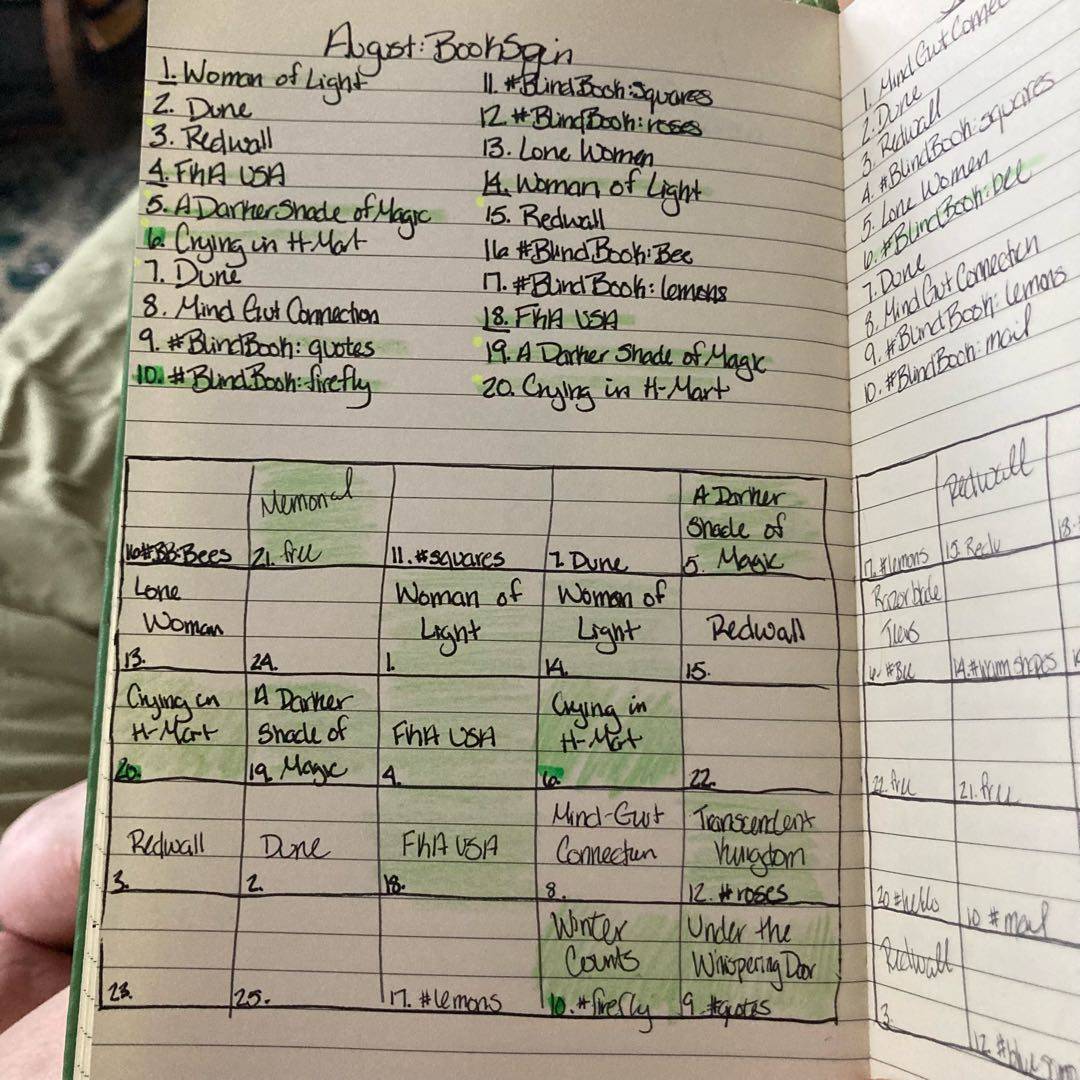 August: BookSpin
1. Woman of Light
2. Dune
3. Redwall
4. FKA USA
5. A Darker Shade of Magic
6. Crying in H-Mart
7. Dune
8. Mind Gut Connection
9. #BlindBook: quotes
10. #BlindBook: firefly
11. #BlindBook: Squares
12. #BlindBook: roses
13. Lone Women
14. Woman of Light
15. Redwall
16 #BlindBook: Bee
17. #BlindBook: lemons
18. FKA USA
19. A Darker Shade of Magic
20. Crying in H-Mart
16 #BB: Bees
Memorial
21. free
11. #squares
7. Dune
A Darker
Shade of
5. Magic
Lone
Woman
13.
24.
Woman of
Light
1.
Woman of
Light
14.
Redwall
15.
Crying in
H-Mart
20.
A Darker
Shade of
19. Magic
FKA USA
4.
Crying in
H-Mart
6.
22.
Redwall
3.
Dune
2.
FKA USA
18.
Mind-Gut
Connection
8.
Transcendent
Kingdom
12. #roses
23.
25.
17. #lemons
Winter
Counts
10. #firefly
Under the
Whispering Door
9. #quotes
1. Mind Gut Connec
2. Dune
3. Redwall
4. #BlindBook: squares
5. Lone Women
6. #BlindBook: bee
7. Dune
8. Mind Gut Connection
9. #BlindBook: lemons
10. #BlindBook: mail
#lemons
Redwall
15. Redw
18.
Razorblade
Tears
6. #Bee
14. #warm shapes
22. free
21. free
20 #hello
10 #mail
Redwall
3.
12. #blue